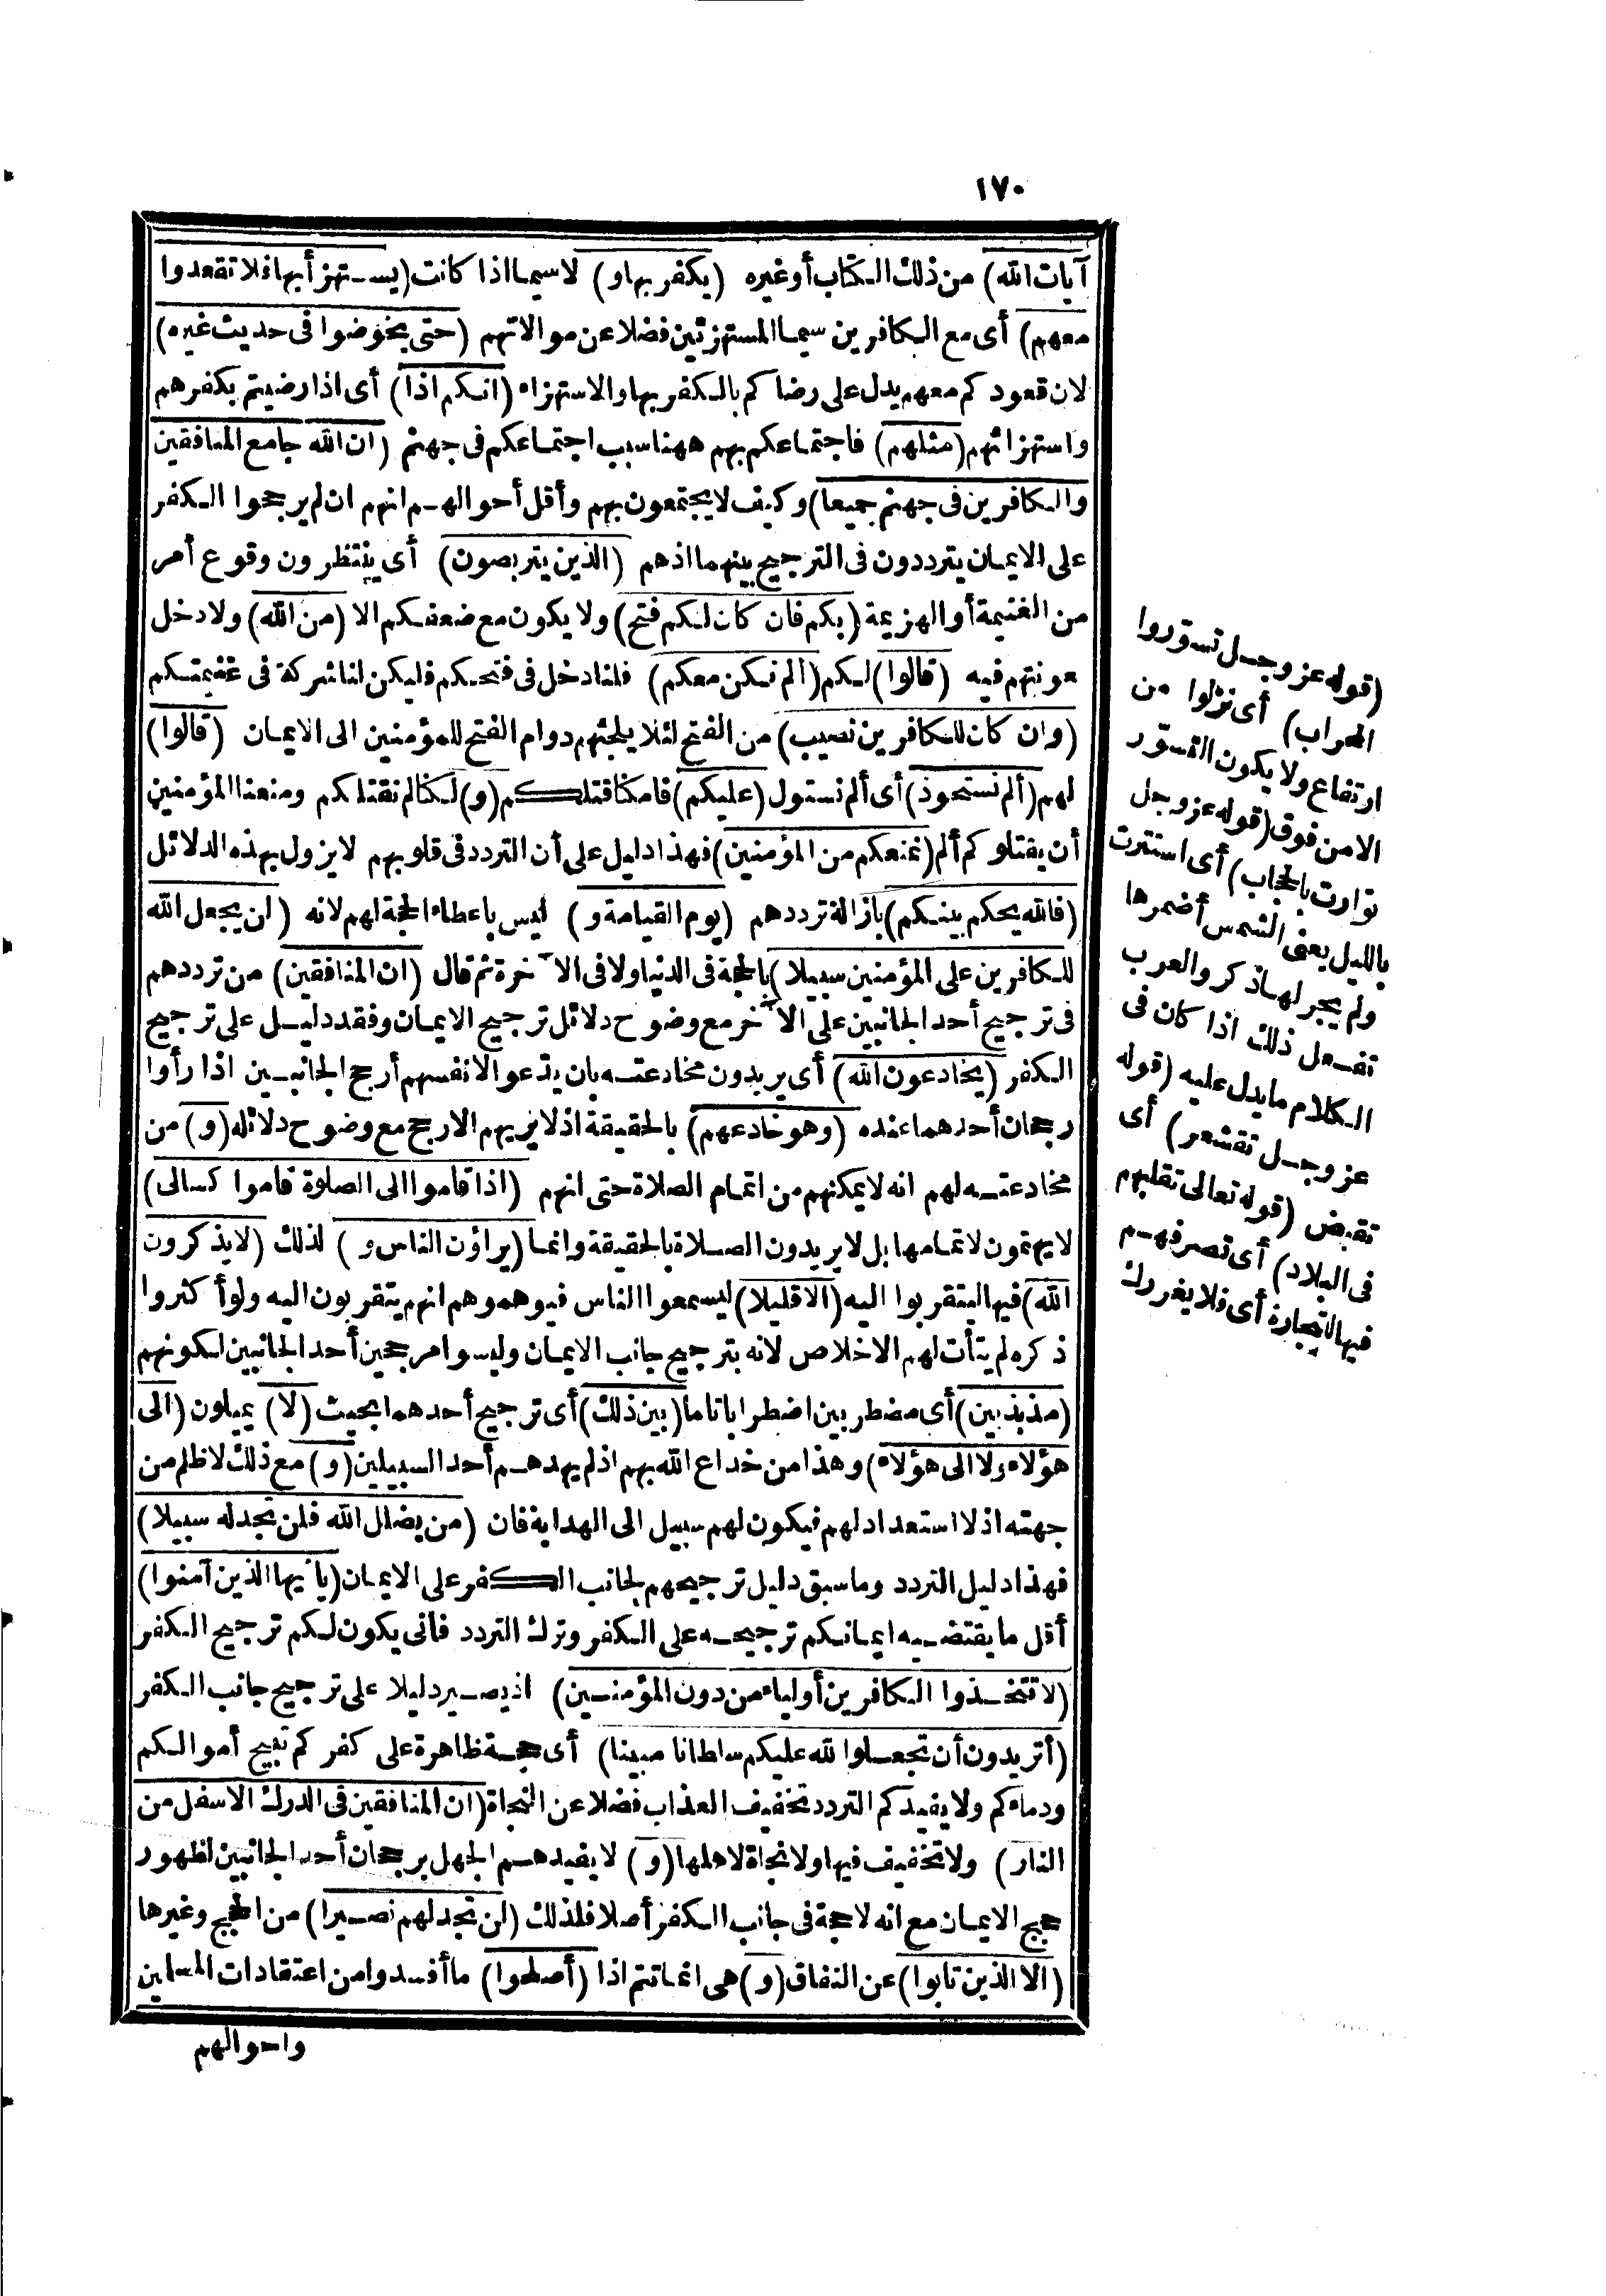 ١٧٠
آيات الله) من ذلك الكتاب أو غيره (يكفر بها و) لا سيما اذا كانت (يستهزأ بها فلا تقعدوا
معهم) أى مع الكافرين سيما المستهزئين فضلا عن موالاتهم (حتى يخوضوا فى حديث غيره)
لان قعودكم معهم يدل على رضاكم بالكفر بها والاستهزاء (انكم اذا) أى اذا رضيتم بكفرهم
واستهزائهم (مثلهم) فاجتماعكم بهم ههنا سبب اجتماعكم فى جهنم (ان الله جامع المنافقين
والكافرين فى جهنم جميعا) وكيف لا يجتمعون بهم وأقل أحوالهم انهم ان لم يرجحوا الكفر
على الايمان يترددون فى الترجيح بينهما اذهم (الذين يتربصون) أى ينتظرون وقوع أمر
من الغنيمة أو الهزيمة (بكم فان كان لكم فتح) ولا يكون مع ضعفكم الا (من الله) ولا دخل
عونتهم فيه (قالوا) لكم (ألم نكن معكم) فلنا دخل فى فتحكم فليكن لنا شركة فى غنيمتكم
(وان كان للكافرين نصيب) من الفتح لئلا يلجئهم دوام الفتح للمؤمنين الى الايمان (قالوا)
لهم (ألم نستحوذ) أى ألم نستول (عليكم) فامكنا قتلكم (و) لكنا لم نقتلكم ومنعنا المؤمنين
أن يقتلوكم ألم (نمنعكم من المؤمنين) فهذا دليل على أن التردد فى قلوبهم لا يزول بهذه الدلائل
(فالله يحكم بينكم) بازالة ترددهم (يوم القيامة و) ليس باعطاء الحجة لهم لانه (لن يجعل الله
للكافرين على المؤمنين سبيلا) بالحجة فى الدنيا ولا فى الآخرة ثم قال (ان المنافقين) من ترددهم
فى ترجيح أحد الجانبين على الآخر مع وضوح دلائل ترجيح الايمان وفقد دليل على ترجيح
الكفر (يخادعون الله) أى يريدون مخادعته بان يدعوا لانفسهم أرجح الجانبين اذا رأوا
رجحان أحدهما عنده (وهو خادعهم) بالحقيقة اذ لا يريهم الارجح مع وضوح دلائله (و) من
مخادعته لهم انه لا يمكنهم من اتمام الصلاة حتى انهم (اذا قاموا الى الصلوة قاموا كسالى)
لا يهتمون لاتمامها بل لا يريدون الصلاة بالحقيقة وانما (يراؤن الناس و) لذلك (لا يذكرون
الله) فيها ليتقربوا اليه (الا قليلا) ليسمعوا الناس فيوهموهم انهم يتقربون اليه ولو أكثروا
ذكره لم يتأت لهم الاخلاص لانه بترجيح جانب الايمان وليسوا مرجحين أحد الجانبين لكونهم
(مذبذبين) أى مضطربين اضطرابا تاما (بين ذلك) أى ترجيح أحدهما بحيث (لا) يميلون (الى
هؤلاء ولا الى هؤلاء) وهذا من خداع الله بهم اذ لم يهدهم أحد السبيلين (و) مع ذلك لا ظلم من
جهته اذ لا استعداد لهم فيكون لهم سبيل الى الهداية فان (من يضلل الله فلن تجد له سبيلا)
فهذا دليل التردد وما سبق دليل ترجيحهم لجانب الكفر على الايمان (يا أيها الذين آمنوا)
أقل ما يقتضيه ايمانكم ترجيحه على الكفر وترك التردد فانى يكون لكم ترجيح الكفر
(لا تتخذوا الكافرين أولياء من دون المؤمنين) اذ يصير دليلا على ترجيح جانب الكفر
(أتريدون أن تجعلوا لله عليكم سلطانا مبينا) أى حجة ظاهرة على كفركم تبيح أموالكم
ودماءكم ولا يفيدكم التردد تخفيف العذاب فضلا عن النجاة (ان المنافقين فى الدرك الاسفل من
النار) ولا تخفيف فيها ولا نجاة لاهلها (و) لا يفيدهم الجهل برجحان أحد الجانبين لظهور
حجج الايمان مع انه لا حجة فى جانب الكفر أصلا فلذلك (لن تجد لهم نصيرا) من الحجج وغيرها
(الا الذين تابوا) عن النفاق (و) هى انما تتم اذا (أصلحوا) ما أفسدوا من اعتقادات المسلمين
واحوالهم
(قوله عز وجل تسوّروا
المحراب) أى نزلوا من
ارتفاع ولا يكون التسوّر
الا من فوق (قوله عز وجل
توارت بالحجاب) أى استترت
بالليل يعنى الشمس أضمرها
ولم يجر لها ذكر والعرب
تفعل ذلك اذا كان فى
الكلام ما يدل عليه (قوله
عز وجل تقشعر) أى
تقبض (قوله تعالى تقلبهم
فى البلاد) أى تصرفهم
فيها للتجارة أى فلا يغررك